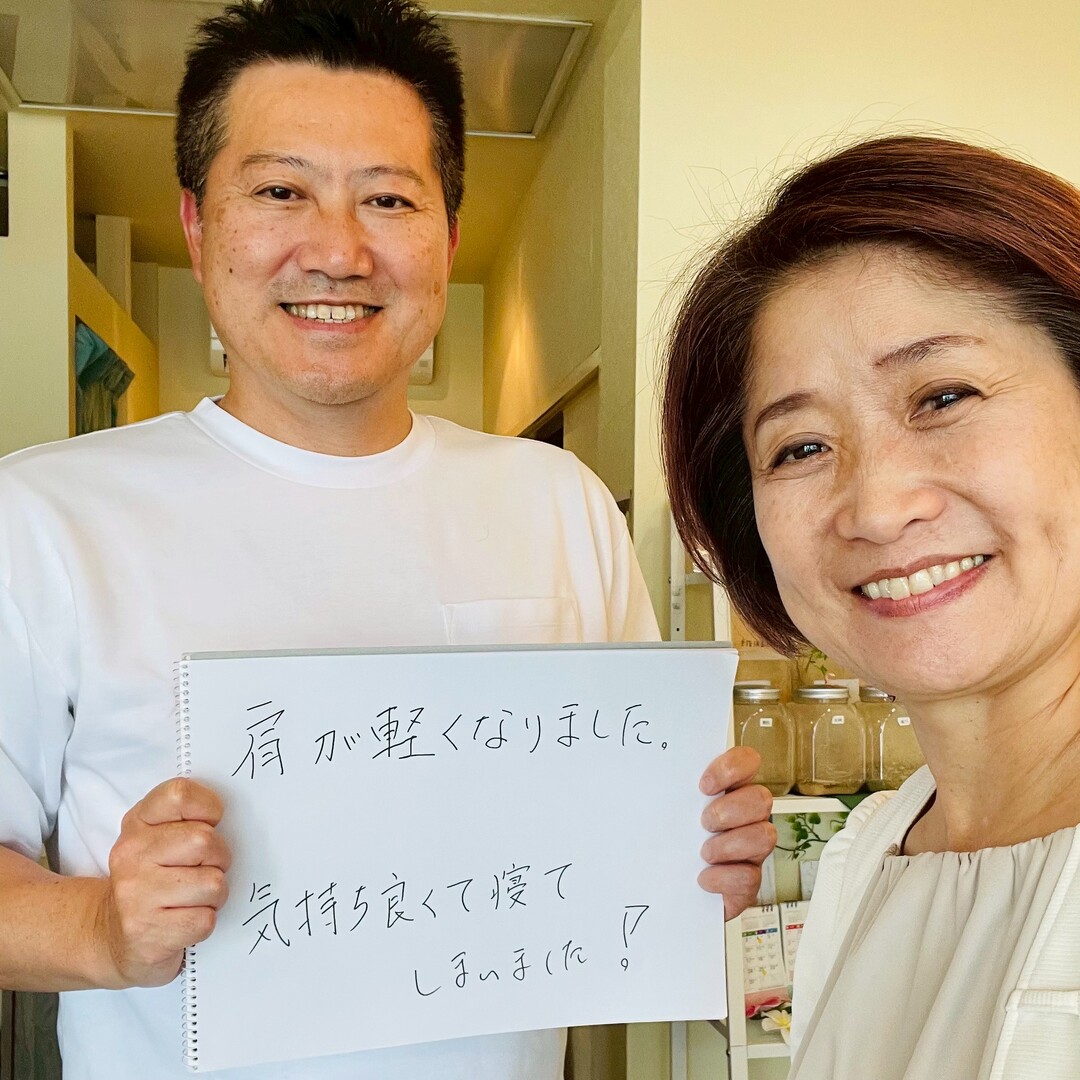 肩が軽くなりました。
気持ち良くて寝て
しまいました!